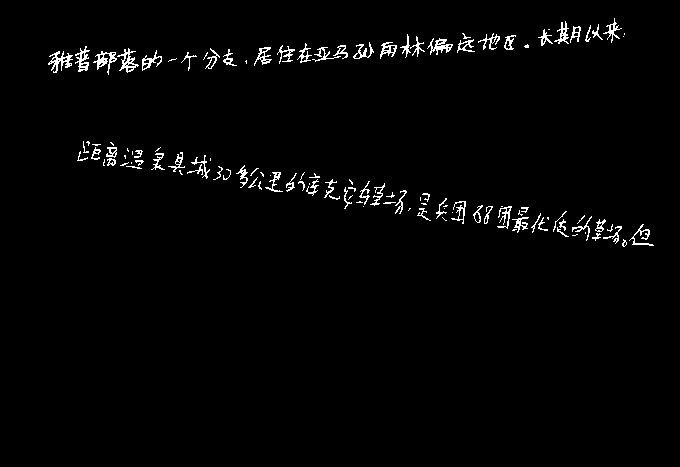 雅普部落的一个分支,居住在亚马孙雨林偏远地区。长期以来,
距离温泉县城30多公里的库克安草场,是兵团88团最优质的草场。但